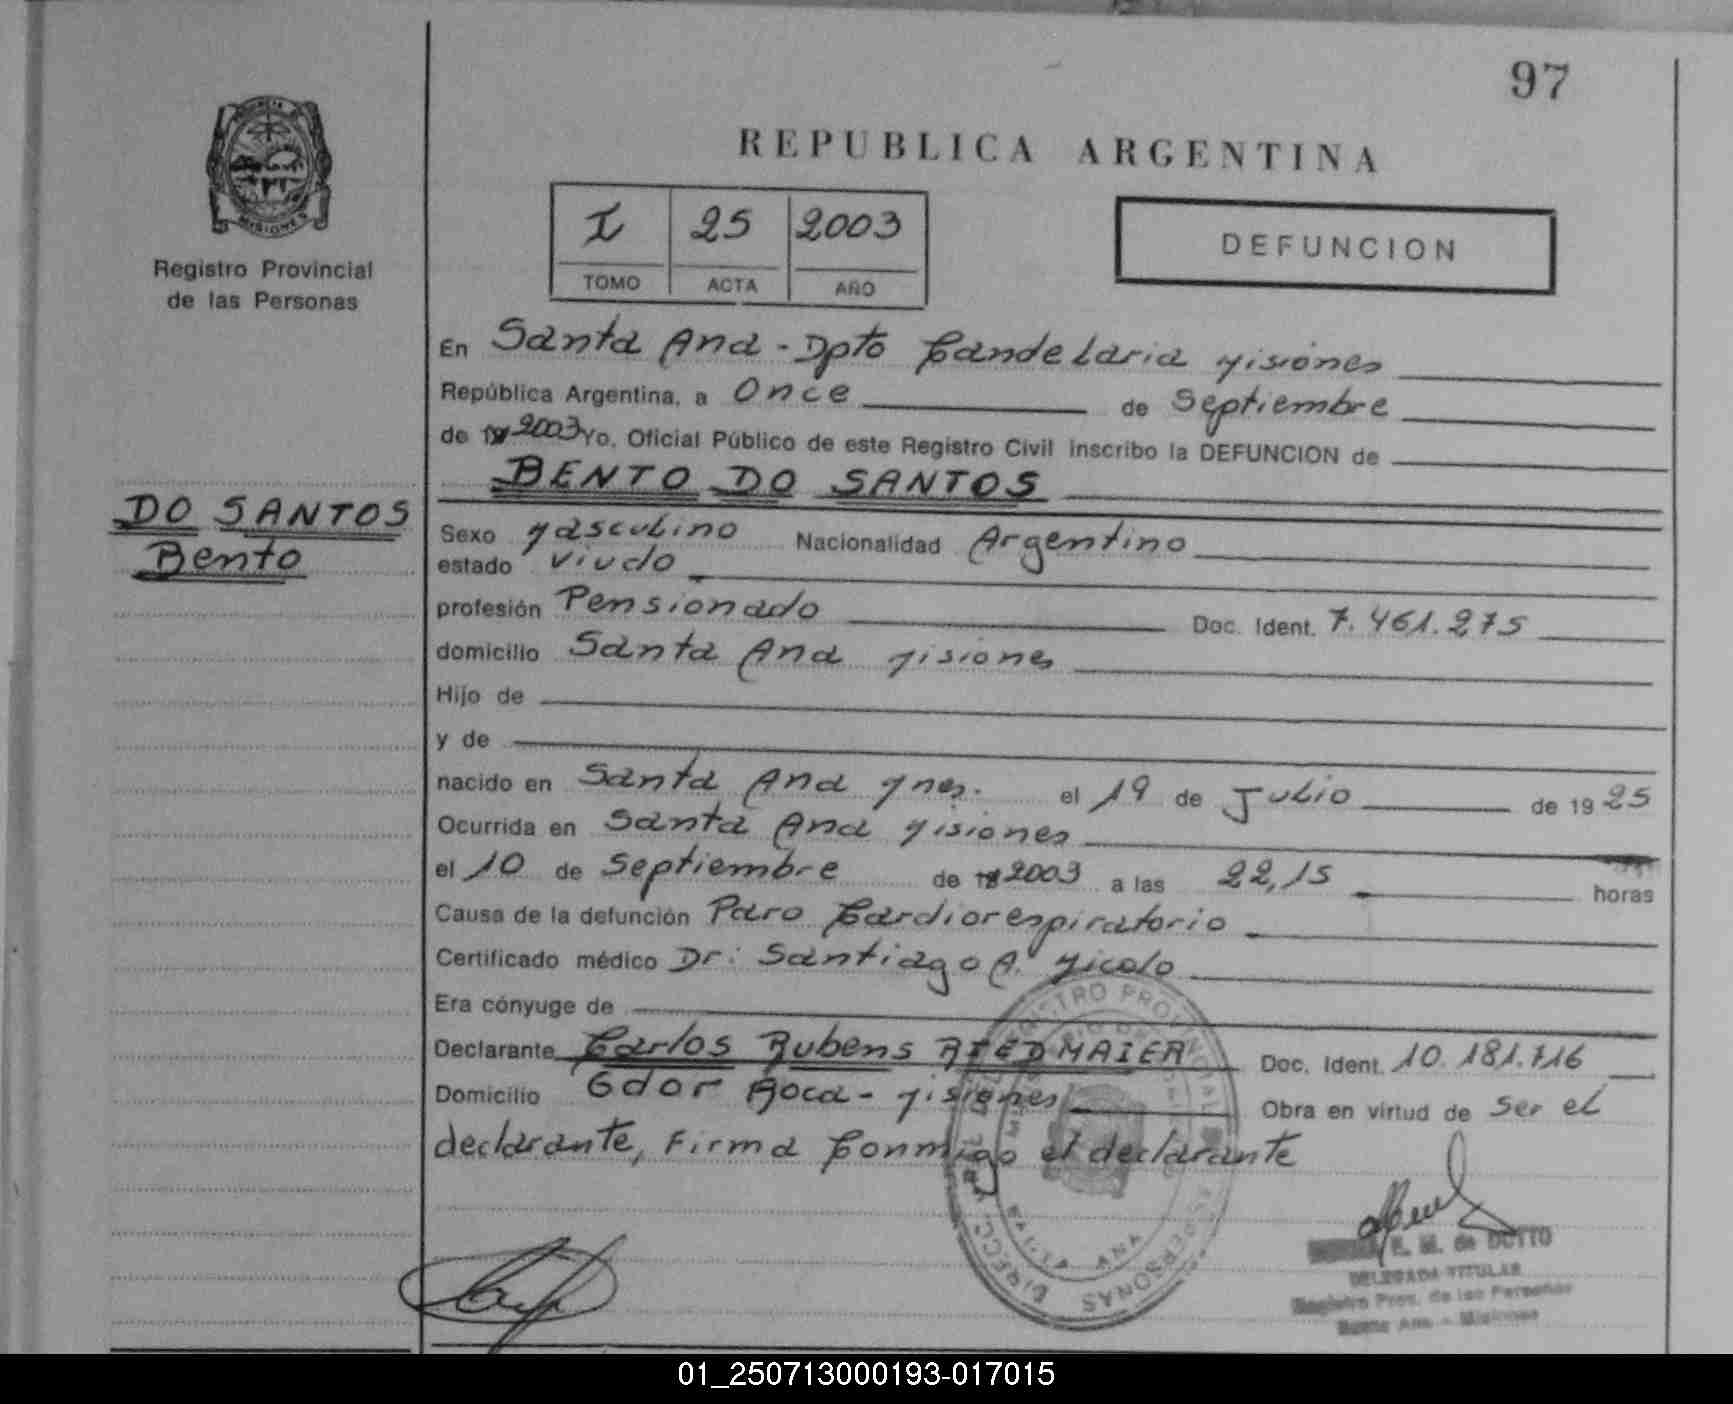 97
REPUBLICA ARGENTINA
PROVINCIA DE
MISIONES
Registro Provincial
de las Personas
I 25 2003
TOMO ACTA AÑO
DEFUNCION
En Santa Ana - Dpto Candelaria Misiones
República Argentina, a Once de Septiembre
de 19 2003 Yo, Oficial Público de este Registro Civil inscribo la DEFUNCION de
BENTO DO SANTOS
DO SANTOS
Bento
Sexo Masculino Nacionalidad Argentino
estado Viudo
profesión Pensionado Doc. Ident. 7.461.275
domicilio Santa Ana Misiones
Hijo de
y de
nacido en Santa Ana Mnes. el 19 de Julio de 1925
Ocurrida en Santa Ana Misiones
el 10 de Septiembre de 19 2003 a las 22,15 horas
Causa de la defunción Paro Cardiorespiratorio
Certificado médico Dr: Santiago A.
Era cónyuge de
Declarante Carlos Rubens RIEDMAIER Doc. Ident. 10.181.716
Domicilio Gdor Roca - Misiones Obra en virtud de Ser el
declarante, Firma Conmigo el declarante
E. M. de DOTTO
DELEGADA TITULAR
Registro Prov. de las Personas
Santa Ana - Misiones
01_250713000193-017015